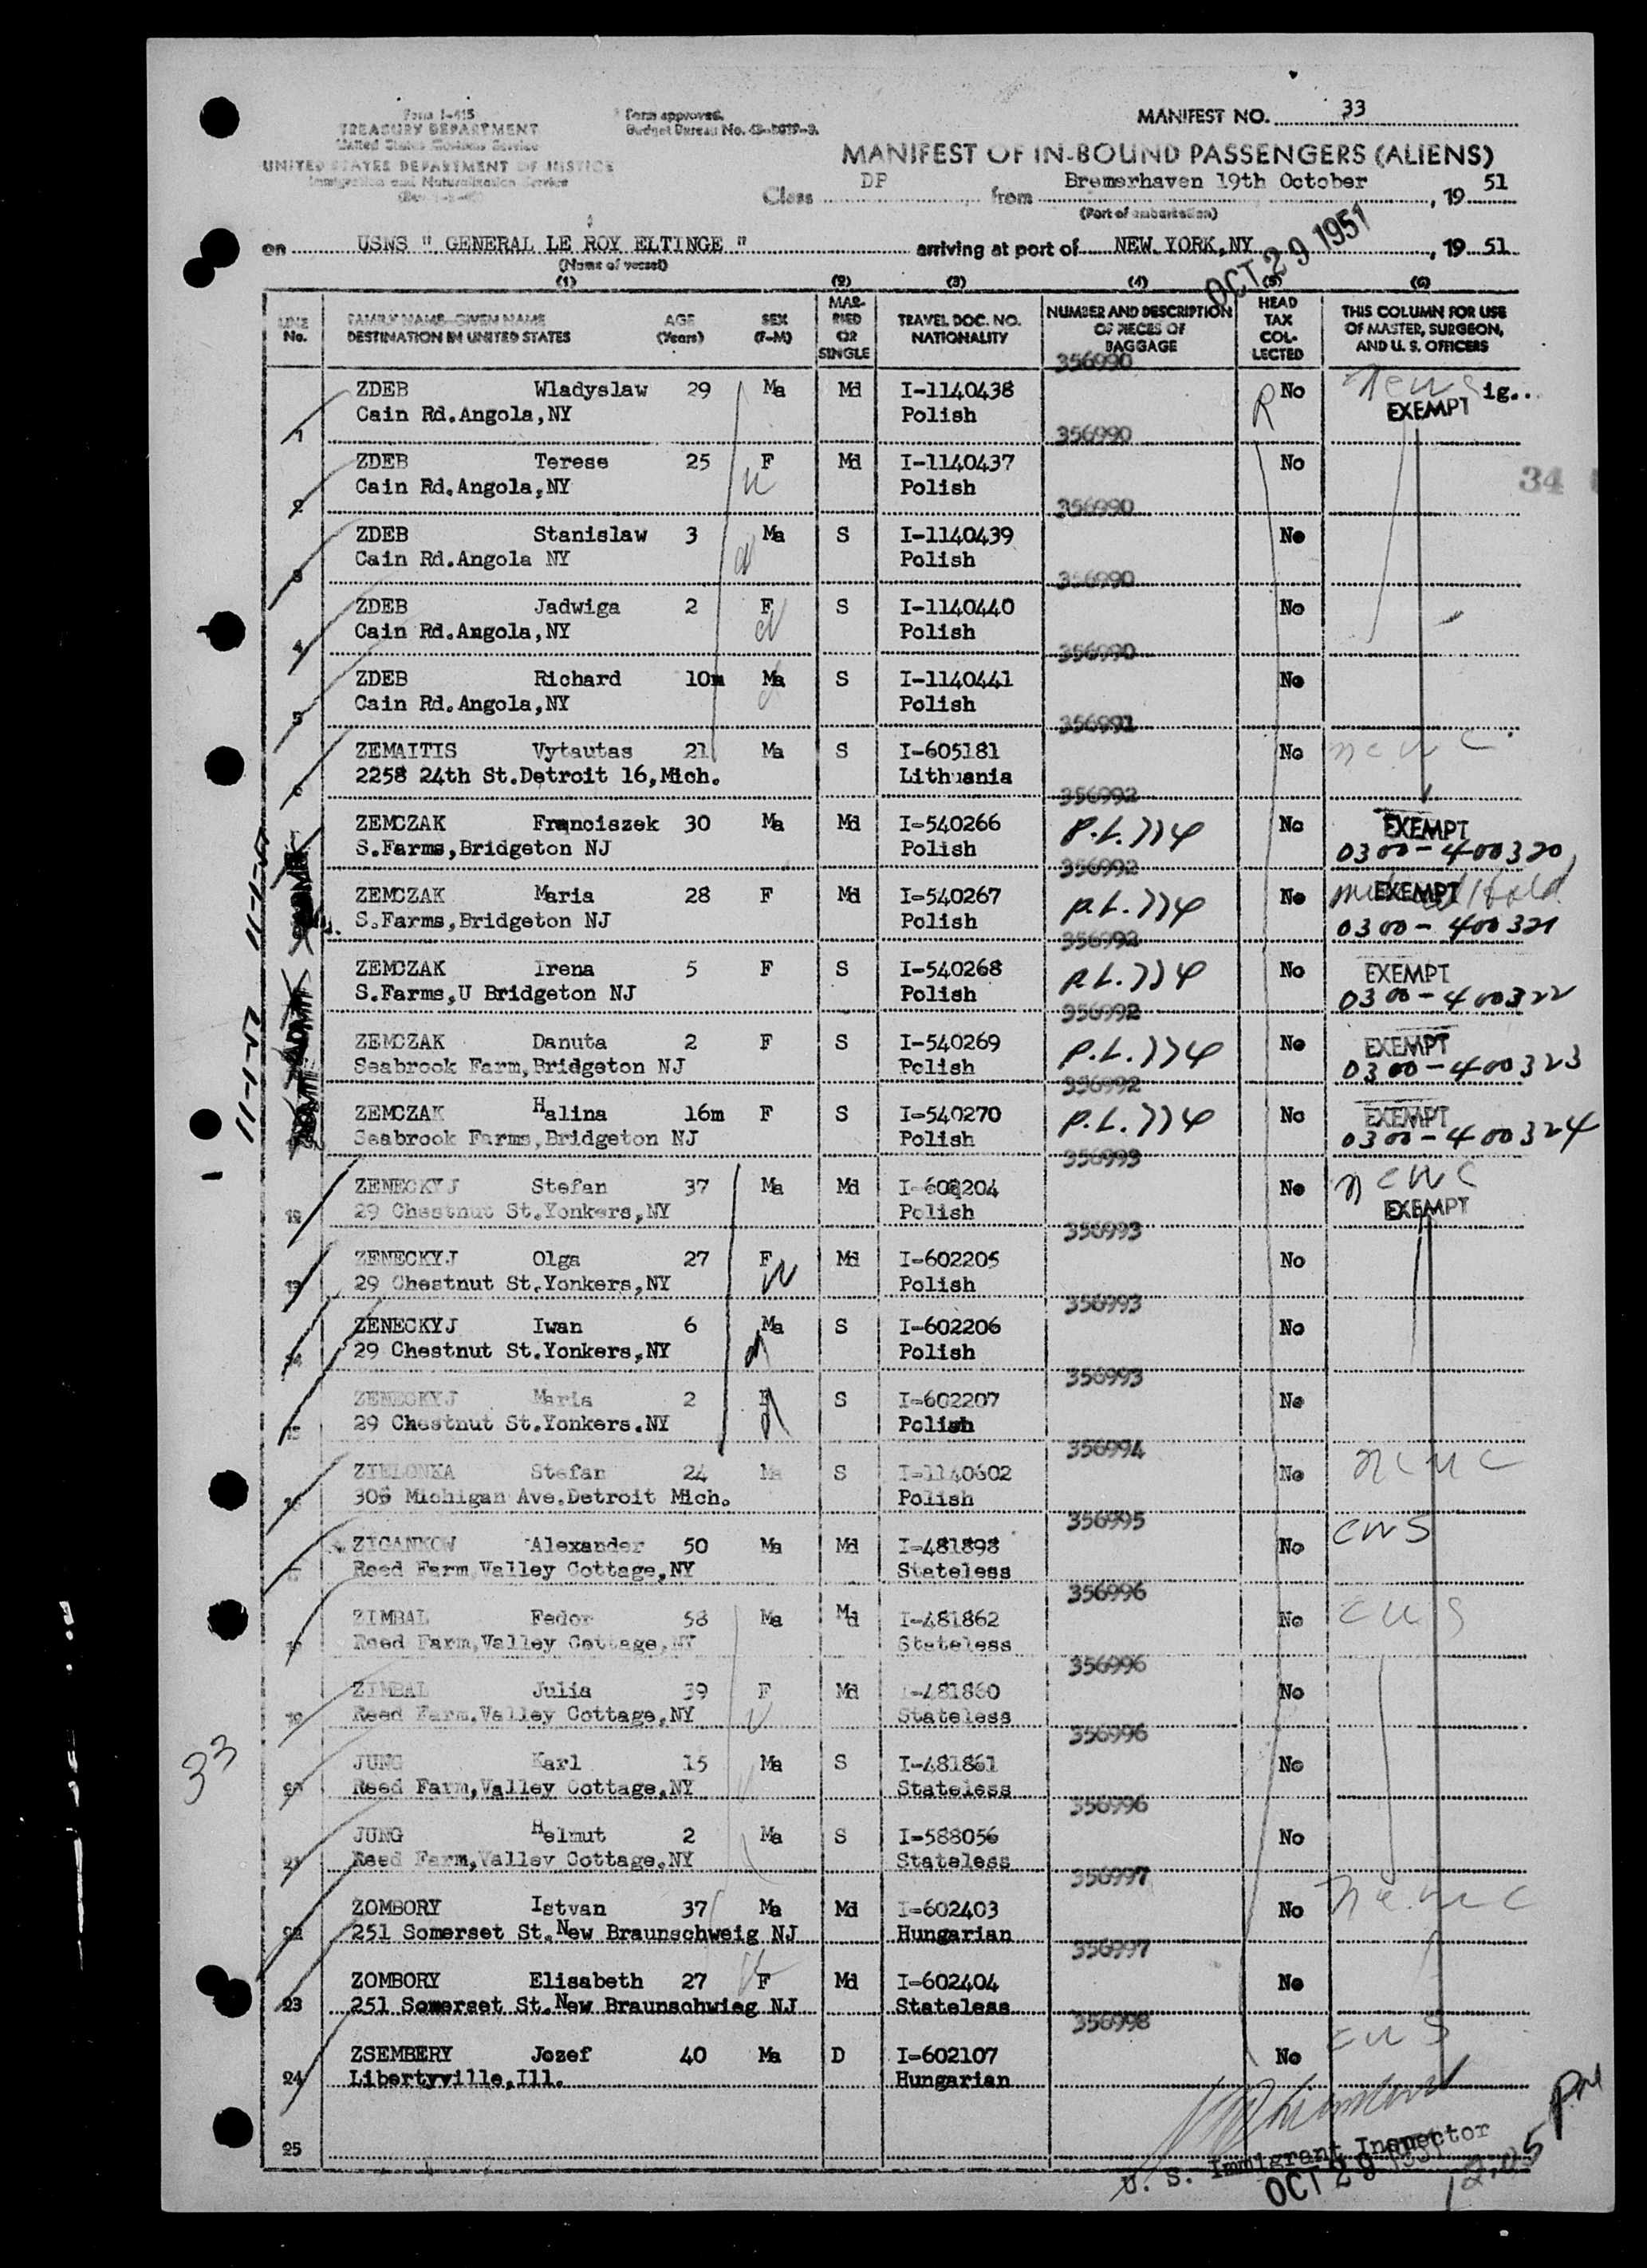 Form I-415
TREASURY DEPARTMENT
United States Customs Service
UNITED STATES DEPARTMENT OF JUSTICE
Immigration and Naturalization Service
Form approved.
Budget Bureau No.
MANIFEST NO. 33
MANIFEST OF IN-BOUND PASSENGERS (ALIENS)
Class DP from Bremerhaven 19th October, 19 51
(Port of embarkation)
on USNS " GENERAL LE ROY ELTINGE " arriving at port of NEW YORK,NY, 19 51
(Name of vessel)
OCT 29 1951
(1) (2) (3) (4) (5) (6)
LINE No. FAMILY NAME—GIVEN NAME DESTINATION IN UNITED STATES AGE (Years) SEX (F-M) MARRIED OR SINGLE TRAVEL DOC. NO. NATIONALITY NUMBER AND DESCRIPTION OF PIECES OF BAGGAGE HEAD TAX COLLECTED THIS COLUMN FOR USE OF MASTER, SURGEON, AND U. S. OFFICERS
356990
ZDEB Wladyslaw 29 Ma Md I-1140438 R No ig..
1 Cain Rd.Angola,NY Polish EXEMPT
356990
ZDEB Terese 25 F Md I-1140437 No
2 Cain Rd.Angola,NY Polish
34
356990
ZDEB Stanislaw 3 Ma S I-1140439 No
3 Cain Rd.Angola NY Polish
356990
ZDEB Jadwiga 2 F S I-1140440 No
4 Cain Rd.Angola,NY Polish
356990
ZDEB Richard 10m Ma S I-1140441 No
5 Cain Rd.Angola,NY Polish
356991
ZEMAITIS Vytautas 21 Ma S I-605181 No ncwc
6 2258 24th St.Detroit 16,Mich. Lithuania
356992
ZEMCZAK Franciszek 30 Ma Md I-540266 P.L.774 No EXEMPT
S.Farms,Bridgeton NJ Polish 0300-400320
356992
ZEMCZAK Maria 28 F Md I-540267 P.L.774 No EXEMPT Hold
S.Farms,Bridgeton NJ Polish 0300-400321
11-1-51
356992
ZEMCZAK Irena 5 F S I-540268 P.L.774 No EXEMPT
S.Farms,U Bridgeton NJ Polish 0300-400322
356992
ZEMCZAK Danuta 2 F S I-540269 P.L.774 No EXEMPT
Seabrook Farm,Bridgeton NJ Polish 0300-400323
11-1-51
356992
ZEMCZAK Halina 16m F S I-540270 P.L.774 No EXEMPT
Seabrook Farms,Bridgeton NJ Polish 0300-400324
356993
ZENECKYJ Stefan 37 Ma Md No ncwc
12 29 Chestnut St.Yonkers,NY Polish EXEMPT
356993
ZENECKYJ Olga 27 F Md I-602205 No
13 29 Chestnut St.Yonkers,NY Polish
356993
ZENECKYJ Iwan 6 Ma S I-602206 No
14 29 Chestnut St.Yonkers,NY Polish
356993
ZENECKYJ Maria 2 F S I-602207 No
15 29 Chestnut St.Yonkers.NY Polish
356994
ZIELONKA Stefan 24 Ma S I-1140602 No ncwc
16 306 Michigan Ave.Detroit Mich. Polish
356995
ZIGANKOW Alexander 50 Ma Md I-481898 No cws
17 Reed Farm Valley Cottage,NY Stateless
356996
ZIMBAL Fedor 58 Ma Md I-481862 No cws
18 Reed Farm,Valley Cottage,NY Stateless
356996
ZIMBAL Julia 39 F Md I-481860 No
19 Reed Farm.Valley Cottage,NY Stateless
356996
JUNG Karl 15 Ma S I-481861 No
20 Reed Farm,Valley Cottage,NY Stateless
33
356996
JUNG Helmut 2 Ma S I-588056 No
21 Reed Farm,Valley Cottage.NY Stateless
356997
ZOMBORY Istvan 37 Ma Md I-602403 No ncwc
22 251 Somerset St.New Braunschweig NJ Hungarian
356997
ZOMBORY Elisabeth 27 F Md I-602404 No
23 251 Somerset St.New Braunschwieg NJ Stateless
356998
ZSEMBERY Jozef 40 Ma D I-602107 No cws
24 Libertyville,Ill. Hungarian
25
U. S. Immigrant Inspector
OCT 29 1951
12,05 PM